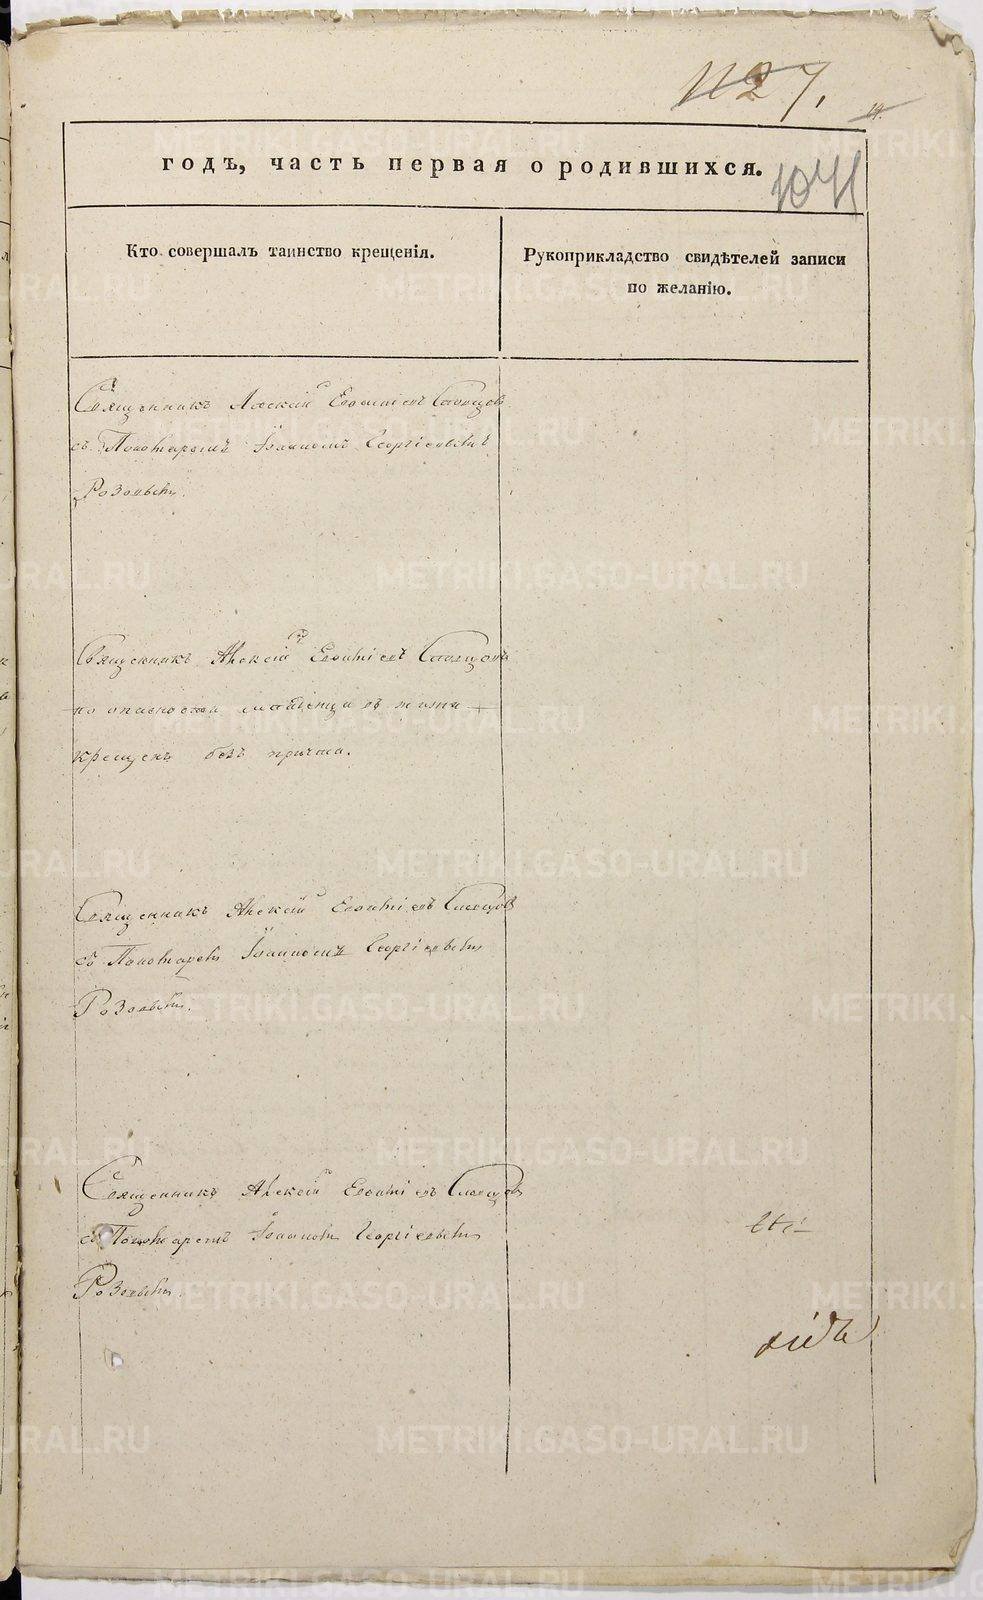 1127.
14.
годъ, часть первая о родившихся.
1041
Кто совершалъ таинство крещенія.
Рукоприкладство свидѣтелей записи
по желанію.
Священникъ Алексій Евѳиміевъ Словцовъ
съ Пономаремъ Іоанномъ Георгіевымъ
Розовымъ.
Священникъ Алексій Евѳиміевъ Словцовъ
по опасности младенца въ жизни
крещенъ безъ причта.
Священникъ Алексій Евѳиміевъ Словцовъ
съ Пономаремъ Іоанномъ Георгіевымъ
Розовымъ.
Священникъ Алексій Евѳиміевъ Словцовъ
съ Пономаремъ Іоанномъ Георгіевымъ
Розовымъ.
METRIKI.GASO-URAL.RU